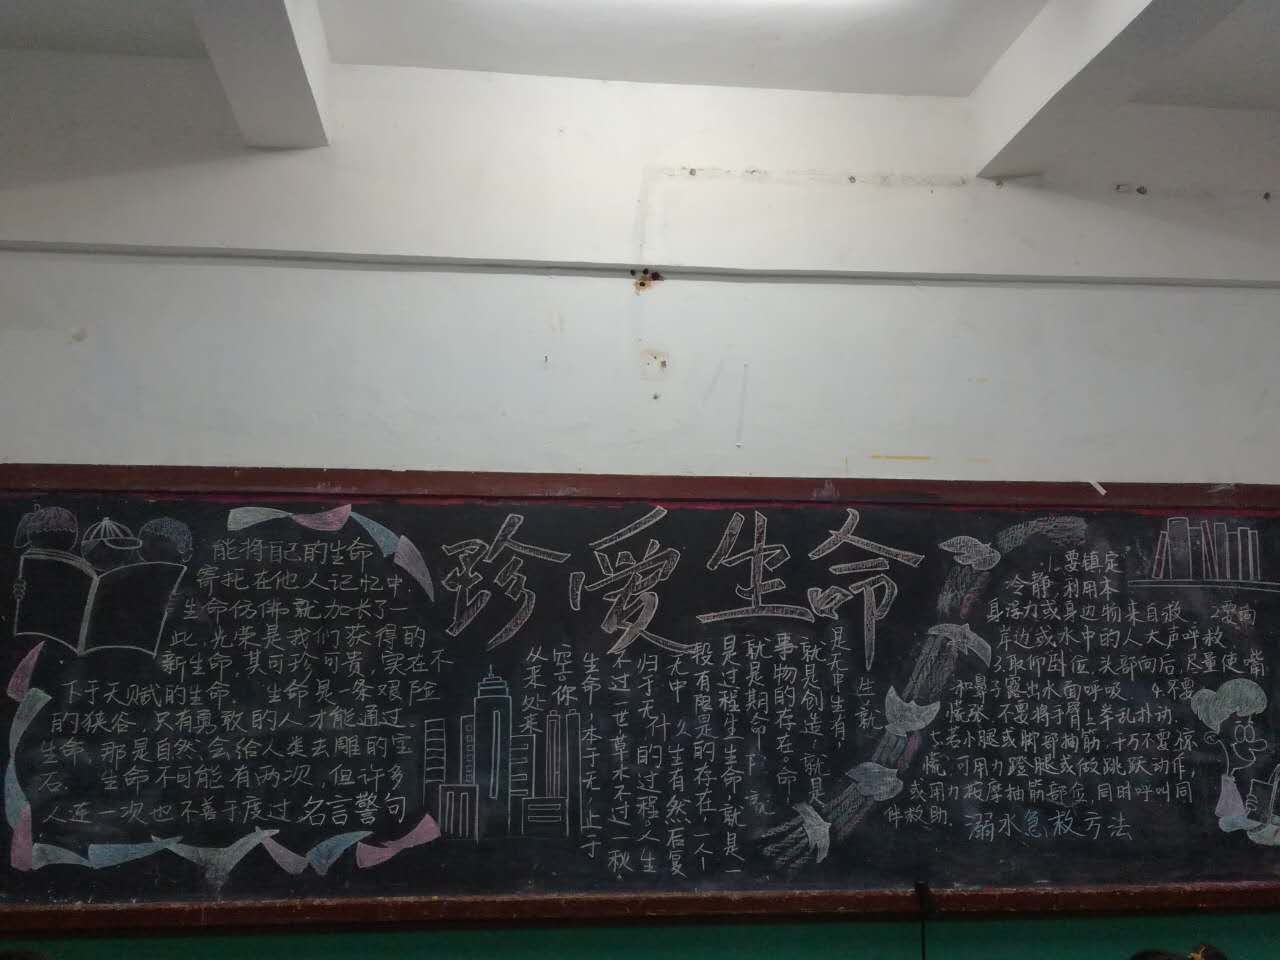 珍爱生命
能将自己的生命
寄托在他人记忆中,
生命仿佛就加长了一
些,光荣是我们获得的
新生命,其可珍可贵,实在不
下于天赋的生命. 生命是一条艰险
的狭谷,只有勇敢的人才能通过.
生命,那是自然会给人类去雕的宝
石. 生命不可能有两次,但许多
人连一次也不善于度过.
名言警句
是无中生有,
就是创造,就是
事物的存在。命
就是期命
是过程生生命就是一
段有限是的存在,一人一
久生有然后复
归于无
的过程人生
不过一世草木不过一秋
生命,本于无,止于
空你
处来处来
1.要镇定
冷静,利用本
身浮力或身边物来自救. 2.要向
岸边或水中的人大声呼救,
3.取仰卧位,头部向后,尽量使嘴
和鼻子露出水面呼吸. 4.不要
慌张,不要将手臂上举乱扑动.
若小腿或脚部抽筋,千万不要惊
慌,可用力蹬腿或做跳跃动作,
或用力按摩抽筋部位,同时呼叫同
伴救助.
溺水急救方法